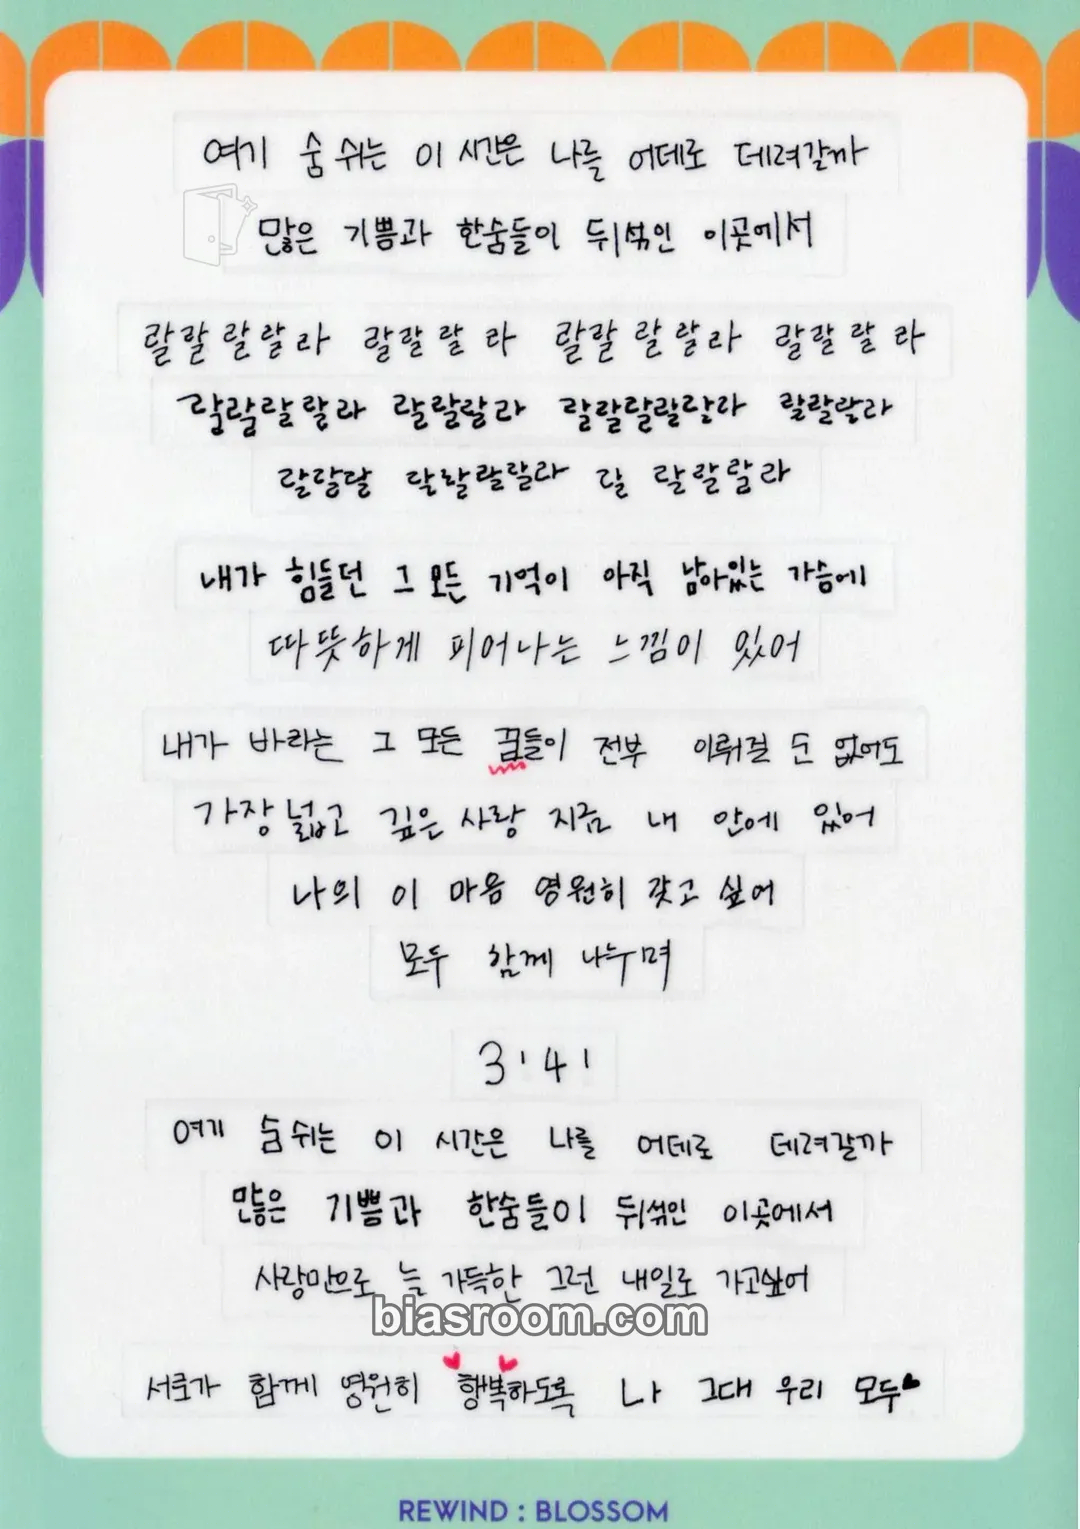 여기 숨 쉬는 이 시간은 나를 어데로 데려갈까
많은 기쁨과 한숨들이 뒤섞인 이곳에서
랄랄랄랄라 랄랄랄라 랄랄랄랄라 랄랄랄라
랄랄랄랄라 랄랄랄라 랄랄랄랄랄라 랄랄랄라
랄랄달 달랄랄랄라 랄랄랄라
내가 힘들던 그 모든 기억이 아직 남아있는 가슴에
따뜻하게 피어나는 느낌이 있어
내가 바라는 그 모든 꿈들이 전부 이뤄질 순 없어도
가장 넓고 깊은 사랑 지금 내 안에 있어
나의 이 마음 영원히 갖고 싶어
모두 함께 나누며
3'41
여기 숨쉬는 이 시간은 나를 어데로 데려갈까
많은 기쁨과 한숨들이 뒤섞인 이곳에서
사랑만으로 늘 가득한 그런 내일로 가고싶어
biasroom.com
서로가 함께 영원히 행복하도록 나 그대 우리 모두
REWIND : BLOSSOM